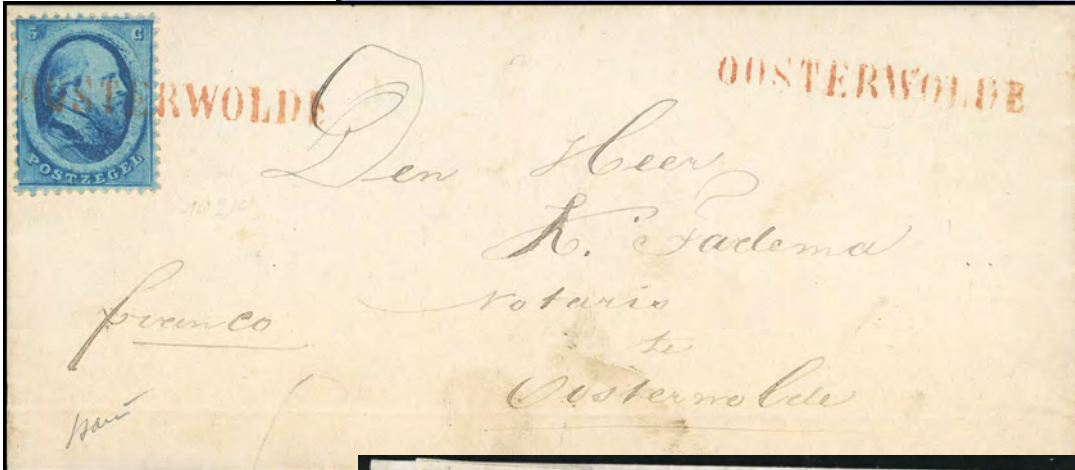 5 C
POSTZEGEL
OOSTERWOLDE
OOSTERWOLDE
Den Heer
K. Fadema
Notaris
te
Oosterwolde
franco